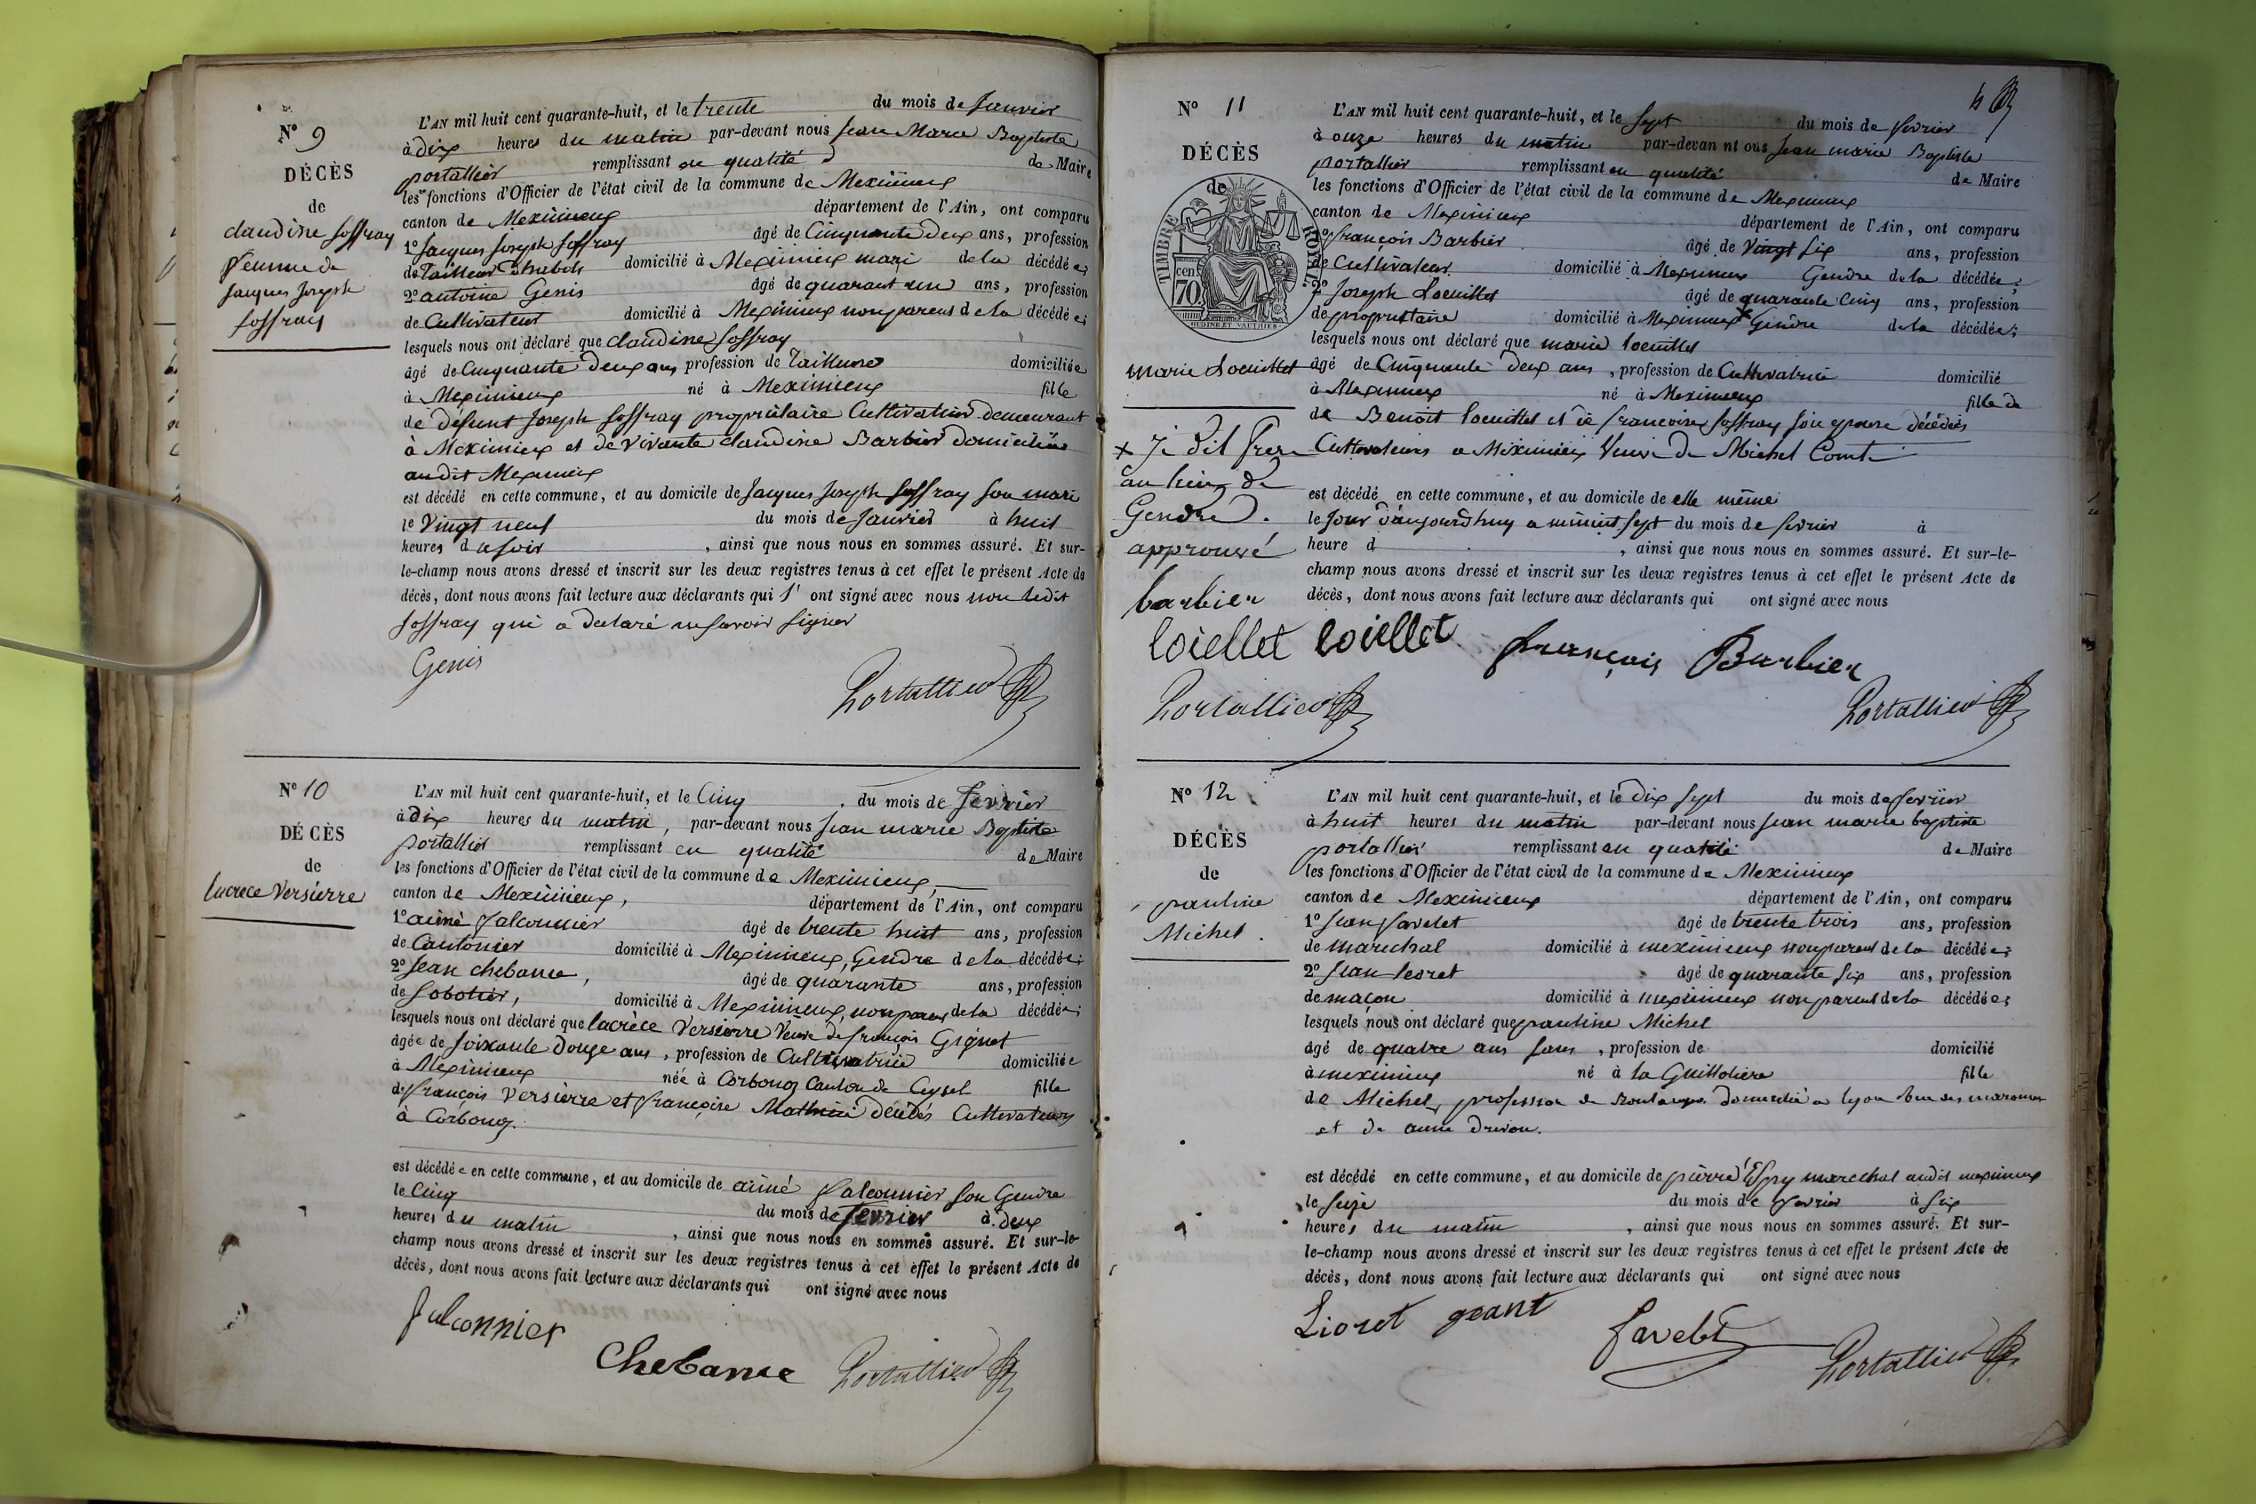 N° 9
DÉCÈS
de
claudine Joffray
femme de
Jacques Joseph
Joffray
L'AN mil huit cent quarante-huit, et le trente du mois de Janvier
à dix heures du matin par-devant nous Jean Marie Baptiste
portallier remplissant en qualité de Maire
les fonctions d'Officier de l'état civil de la commune de Meximieux
canton de Meximieux département de l'Ain, ont comparu
1° Jacques Joseph Joffray âgé de Cinquante deux ans, profession
de Tailleur d'habits domicilié à Meximieux mari de la décédée;
2° antoine Genis âgé de quarant un ans, profession
de Cultivateur domicilié à Meximieux non parens de la décédée;
lesquels nous ont déclaré que claudine Joffray
âgé de Cinquante deux ans profession de Tailleuse domiciliée
à Meximieux né à Meximieux fille
de défunt Joseph Joffray propriétaire Cultivateur demeurant
à Meximieux et de vivante claudine Barbier domiciliée
audit Meximieux
est décédé en cette commune, et au domicile de Jacques Joseph Joffray son mari
le vingt neuf du mois de Janvier à huit
heures du soir, ainsi que nous nous en sommes assuré. Et sur-
le-champ nous avons dressé et inscrit sur les deux registres tenus à cet effet le présent Acte de
décès, dont nous avons fait lecture aux déclarants qui ont signé avec nous non ledit
Joffray qui a déclaré ne savoir signer
Genis
Portallier
N° 10
DÉCÈS
de
lucrece Versierre
L'AN mil huit cent quarante-huit, et le Cinq du mois de Fevrier
à dix heures du matin, par-devant nous Jean marie Baptiste
portallier remplissant en qualité de Maire
les fonctions d'Officier de l'état civil de la commune de Meximieux,
canton de Meximieux, département de l'Ain, ont comparu
1° aimé falconnier âgé de trente huit ans, profession
de Cantonier domicilié à Meximieux, Gendre de la décédée;
2° Jean chebance, âgé de quarante ans, profession
de Sobotier, domicilié à Meximieux, non parens de la décédée;
lesquels nous ont déclaré que lucrèce Versierre Veuve de françois Gignet
âgée de soixante douze ans, profession de Cultivatrice domiciliée
à Meximieux née à Corbonoz Canton de Ceysel fille
de françois Versierre et françoise Mathieu décédés Cultivateurs
à Corbonoz.
est décédée en cette commune, et au domicile de aimé falconnier son Gendre
le Cinq du mois de fevrier à deux
heures du matin, ainsi que nous nous en sommes assuré. Et sur-le-
champ nous avons dressé et inscrit sur les deux registres tenus à cet effet le présent Acte de
décès, dont nous avons fait lecture aux déclarants qui ont signé avec nous
falconnier
Chebance Portallier
4
N° 11
DÉCÈS
de
TIMBRE ROYAL
70 cen
marie Loeuillet
+ Je dit frere
au lieu de
Gendre.
approuvé
barbier
loiellet
Portallier
L'AN mil huit cent quarante-huit, et le sept du mois de fevrier
à onze heures du matin par-devant nous Jean marie Baptiste
portallier remplissant en qualité de Maire
les fonctions d'Officier de l'état civil de la commune de Meximieux
canton de Meximieux département de l'Ain, ont comparu
1° françois Barbier âgé de vingt six ans, profession
de Cultivateur domicilié à Meximieux Gendre de la décédée;
2° Joseph Loeuillet âgé de quarante Cinq ans, profession
de propriétaire domicilié à Meximieux + Gendre de la décédée;
lesquels nous ont déclaré que marie loeuillet
âgé de Cinquante deux ans, profession de Cultivatrice domicilié
à Meximieux né à Meximieux fille de
de Benoit loeuillet et de francoise Joffray son epouse décédés
Cultivateurs a Meximieux Veuve de Michel Comte
est décédé en cette commune, et au domicile de elle même
le Jour d'aujourd'huy a minuit sept du mois de fevrier à
heure d , ainsi que nous nous en sommes assuré. Et sur-le-
champ nous avons dressé et inscrit sur les deux registres tenus à cet effet le présent Acte de
décès, dont nous avons fait lecture aux déclarants qui ont signé avec nous
loiellet françois Barbier
Portallier
N° 12
DÉCÈS
de
pauline
Michel.
L'AN mil huit cent quarante-huit, et le dix sept du mois de fevrier
à huit heures du matin par-devant nous Jean marie baptiste
portallier remplissant en qualité de Maire
les fonctions d'Officier de l'état civil de la commune de Meximieux
canton de Meximieux département de l'Ain, ont comparu
1° Jean favelet âgé de trente trois ans, profession
de maréchal domicilié à meximieux non parens de la décédée;
2° Jean leoret âgé de quarante six ans, profession
de maçon domicilié à meximieux non parens de la décédée;
lesquels nous ont déclaré que pauline Michel
âgé de quatre ans sans, profession de domicilié
à meximieux né à la Guillotière fille
de Michel, domicilié a lyon
et de anne drevon.
est décédé en cette commune, et au domicile de pierre Espy marechal audit meximieux
le seize du mois de fevrier à six
heures du matin, ainsi que nous nous en sommes assuré. Et sur-
le-champ nous avons dressé et inscrit sur les deux registres tenus à cet effet le présent Acte de
décès, dont nous avons fait lecture aux déclarants qui ont signé avec nous
Lioret geant favelet
Portallier